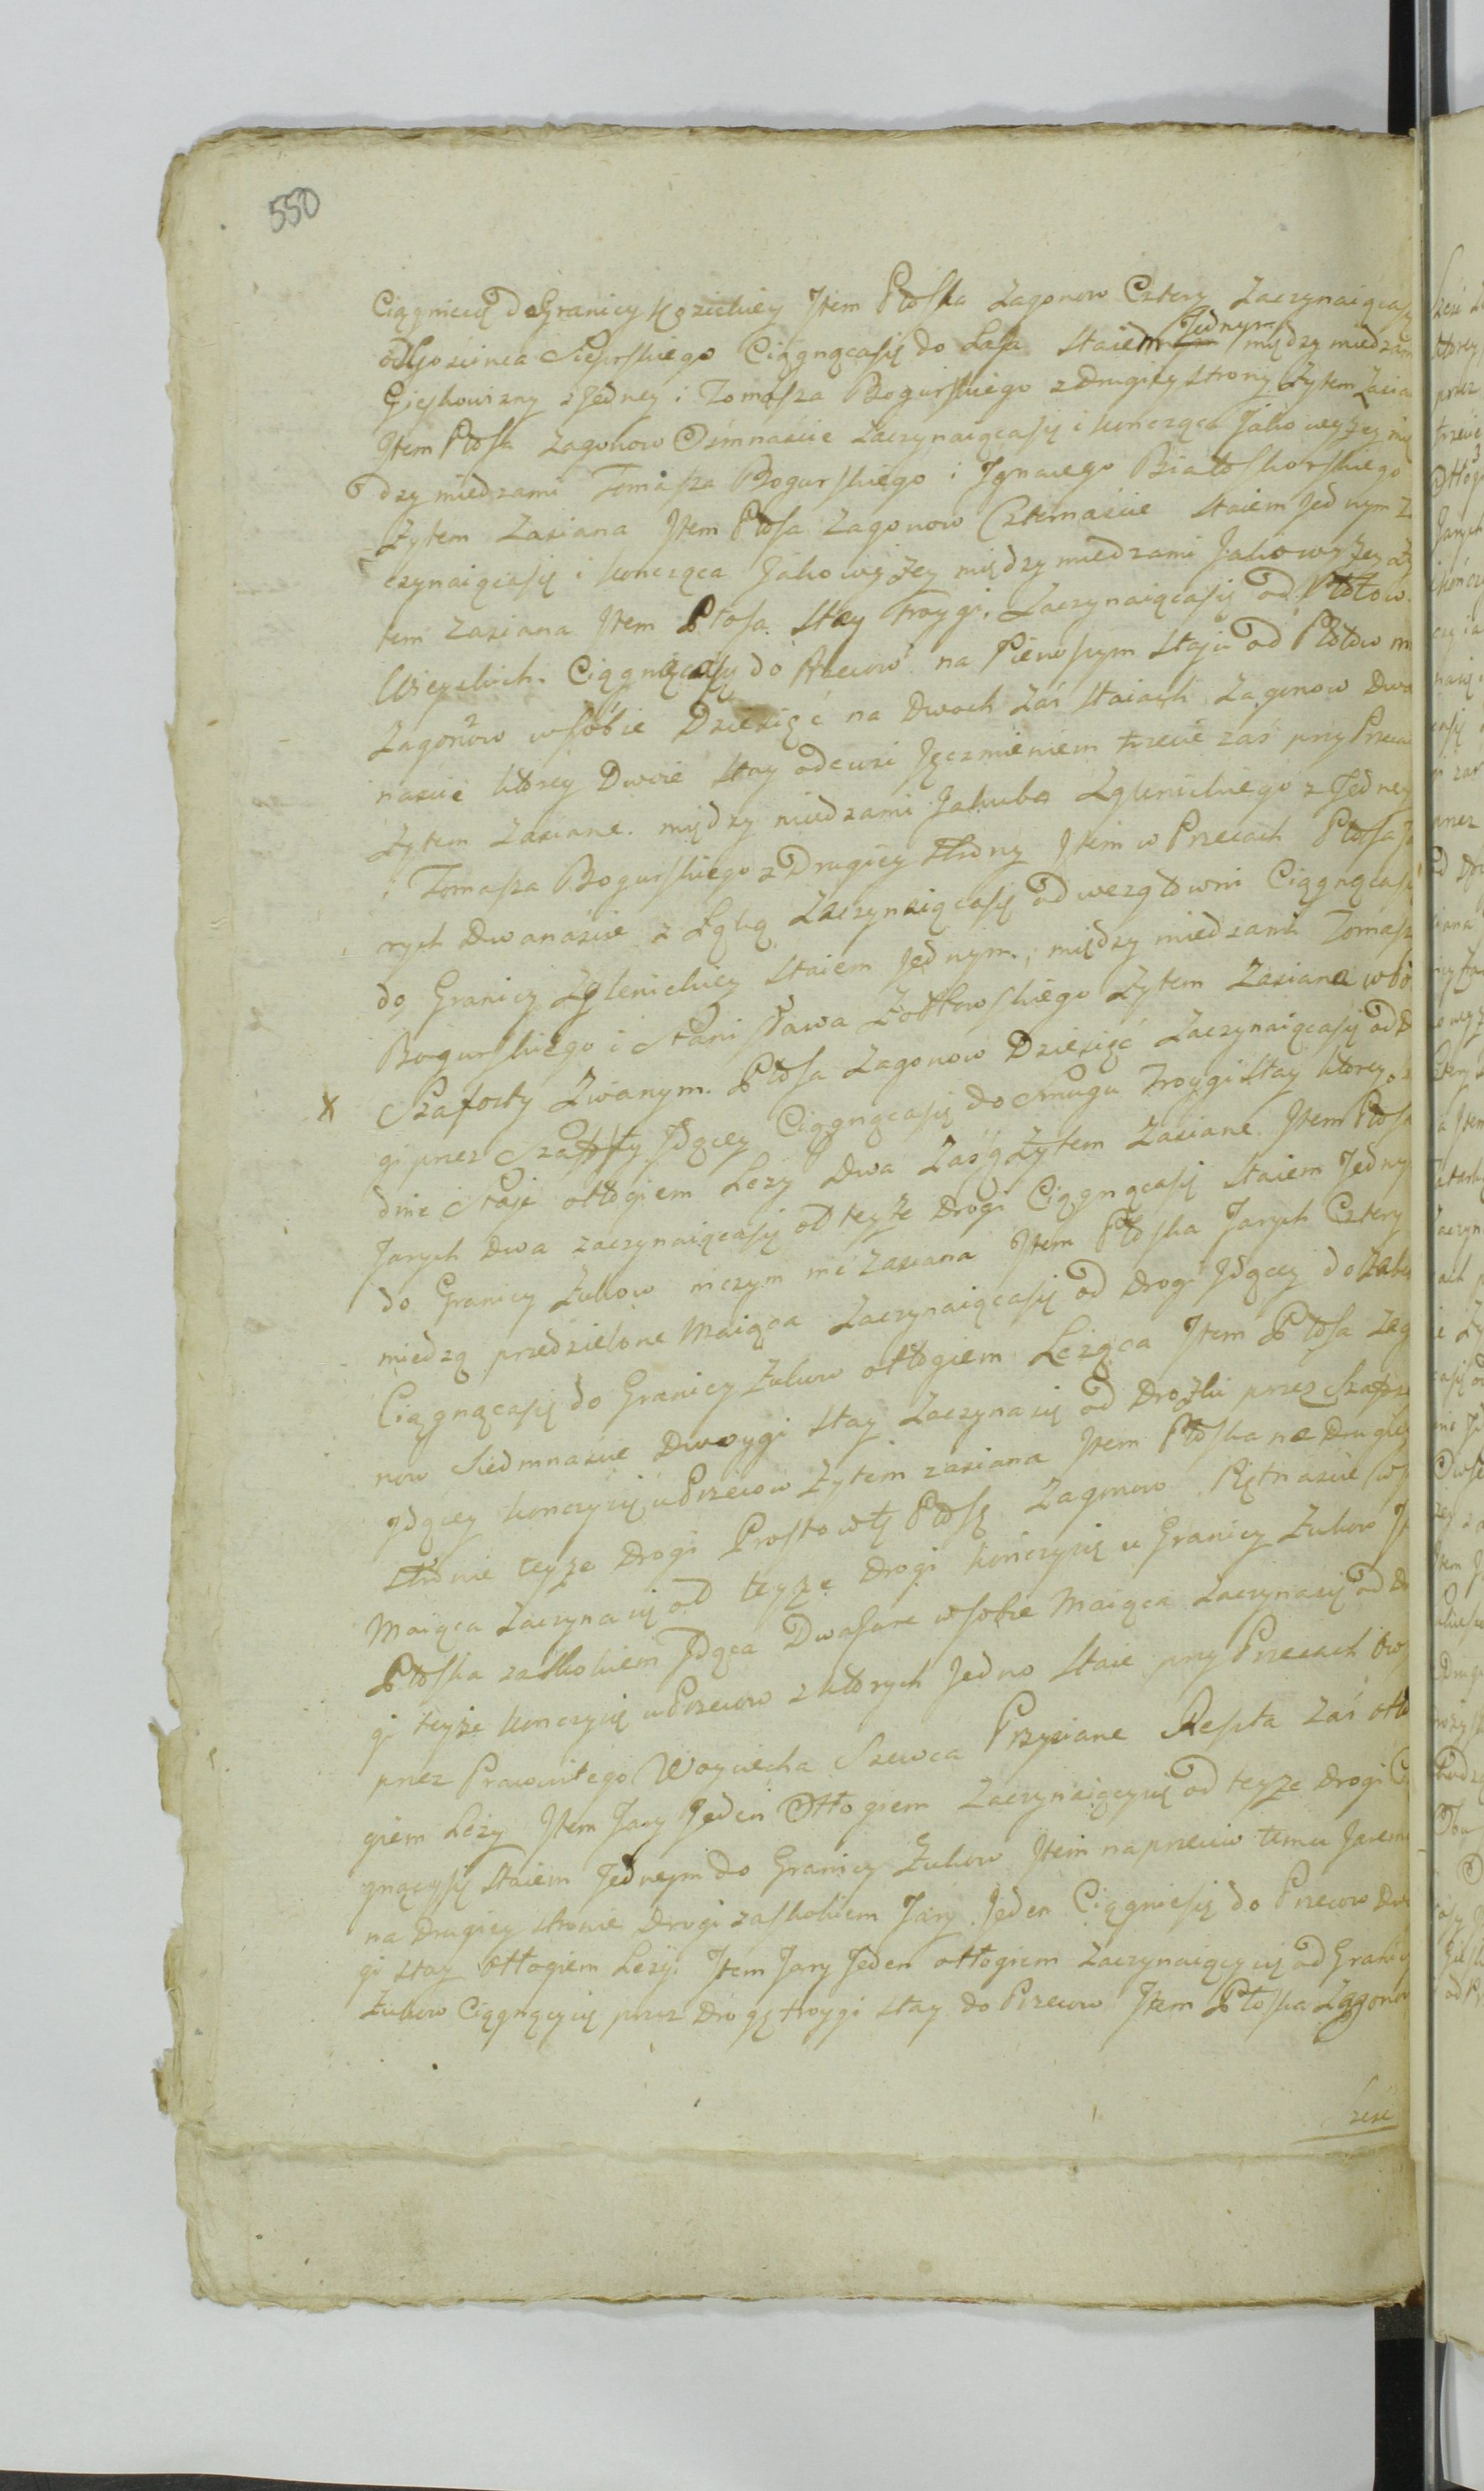 550
Ciągniecię do Granicy Kozickiey Jtem Płoska Zagonow Cztery Zaczynaiącasię
od Goscinca Sieprskiego Ciągnącasię do Lasa Staiem Jednym między miedzam
Gieskowizny z Jedney i Tomasza Bogurskiego z Drugiey strony Żytem Zasia
Jtem Płosa Zagonow Osmnascie Zaczynaiącasię i kończąca Jako wyżey mię
dzy miedzami Tomasza Bogurskiego i Jgnacego Białoskorskiego
Żytem Zasiana Jtem Płosa Zagonow Czternascie Staiem Jednym Za
czynaiącasię i kończąca Jako wyżey między miedzami Jako wyżey Ży
tem Zasiana Jtem Płosa Stay Troygi. Zaczynaiącasię od Płotow
Wieyskich. Ciągnącasię do Przecow na Pierwszym Staju od Płotow m
Zagonow w sobie Dziesięć na Dwoch Zaś Staiach Zagonow Dwa
nascie ktorey Dwoie Stay ode wsi Jęczmieniem trzecie zaś przy Przeca
Żytem Zasiane. między miedzami Jakuba Zglenickiego z Jedney
i Tomasza Bogurskiego z Drugiey Strony Jtem w Przecach Płosa J
rych Dwanascie z Łąką Zaczynaiącasię od wezgłowni Ciągnącasi
do Granicy Zglenickiey Staiem Jednym, między miedzami Tomasz
Bogurskiego i Stanisława Żołtowskiego Żytem Zasiana w bo
x Szaforty Zwanym. Płosa Zagonow Dziesięć Zaczynaiącasię od D
gi przez Jdącey Ciągnącasię do Smugu Troygi Stay ktorey
dnie Staje odłogiem Leży Dwa Zaś Żytem Zasiane Jtem Płosk
Jarych Dwa zaczynaiącasię od teyże Drogi Ciągnącasię Staiem Jedny
do Granicy Żukow niczym nie Zasiana Jtem Płoska Jarych Cztery
miedzą przedzielone Maiąca Zaczynaiącasię od Drogi Jdącey do
Ciągnącasię do Granicy Żukow odłogiem Leżąca Jtem Płosa Zag
now Siedmnascie Dwoygi Stay Zaczynasię od Drożki przez
Jdącey kończysię u Przecow Żytem zasiana Jtem Płoska na Drugiey
stronie teyże Drogi Prosto w tę Płosę Zagonow Piętnascie w s
Maiąca Zaczynasię od teyże Drogi kończysię u Granicy Żukow Jt
Płoska zaskokiem Jdąca Dwa Jare w sobie Maiąca Zaczynasię od D
gi teyże kończysię u Przecow z ktorych Jedno Staie przy Przecach Ow
przez Pracowitego Woyciecha Szewca Przysiane Reszta Zaś odło
giem Leży Jtem Jary Jeden Odłogiem Zaczynaiącysię od teyże Drogi Cią
gnącysię Staiem Jednym do Granicy Żukow Jtem naprzeciw temu Jaremu
na Drugiey stronie Drogi zaskokiem Jary Jeden Ciągniesię do Przecow Dwoy
gi Stay odłogiem Leży. Jtem Jary Jeden odłogiem Zaczynaiącysię od Granicy
Żukow Ciągnącysię przez Drogę troygi Stay do Przecow Jtem Płoska Zagonow
Szesć